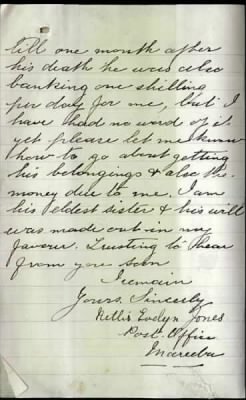 till one month after
his death he was also
banking one shilling
per day for me, but I
have had no word of it
yet please let me know
how to go about getting
his belongings & also the
money due to me. I am
his eldest sister & his will
was made out in my
favour. Trusting to hear
from you soon
I remain
Yours Sincerly
Nellie Evelyn Jones
Post Office
Mareeba